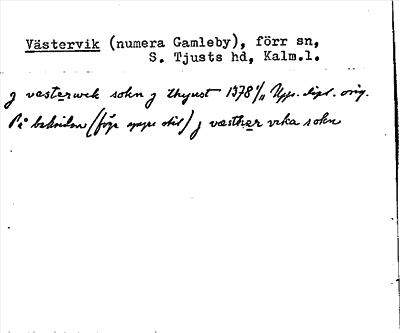 Västervik (numera Gamleby), förr sn,
S. Tjusts hd, Kalm.l.
j västerwek sokn j thyust 1378 1/11 Upps. dipl. orig.
På baksidan (föga yngre stil) j wæsther veka sokn